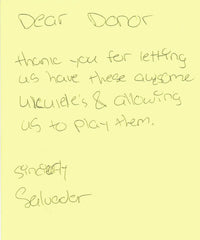 Dear Donor
thank you for letting
us have these awsome
ukulele's & allowing
us to play them.
sincerly
Salvador